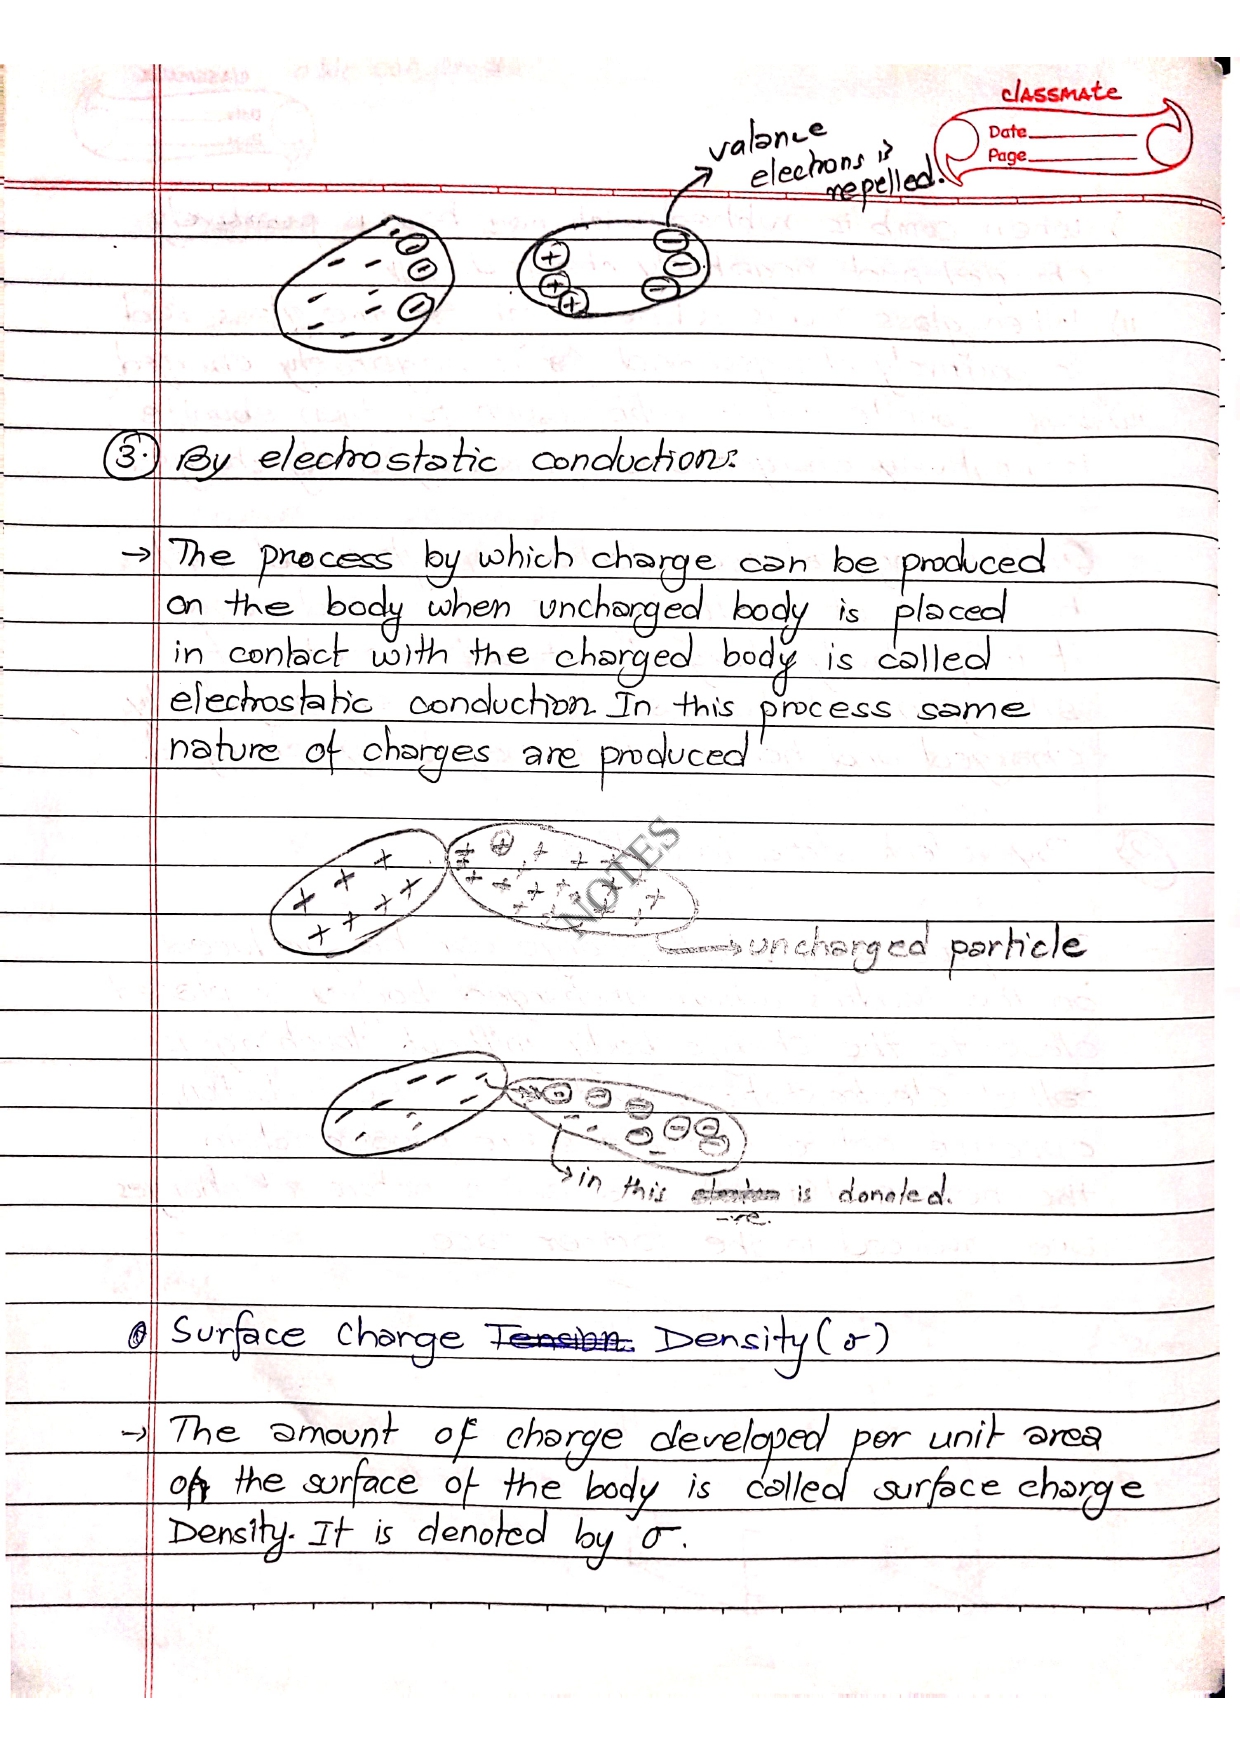 classmate
Date
Page
valance
electrons is
repelled.
3. By electrostatic conduction:
→ The process by which charge can be produced
on the body when uncharged body is placed
in contact with the charged body is called
electrostatic conduction. In this process same
nature of charges are produced
NOTES
→ uncharged particle
→ in this is donated.
-ve.
Surface Charge Tension. Density (σ)
→ The amount of charge developed per unit area
on the surface of the body is called surface charge
Density. It is denoted by σ.